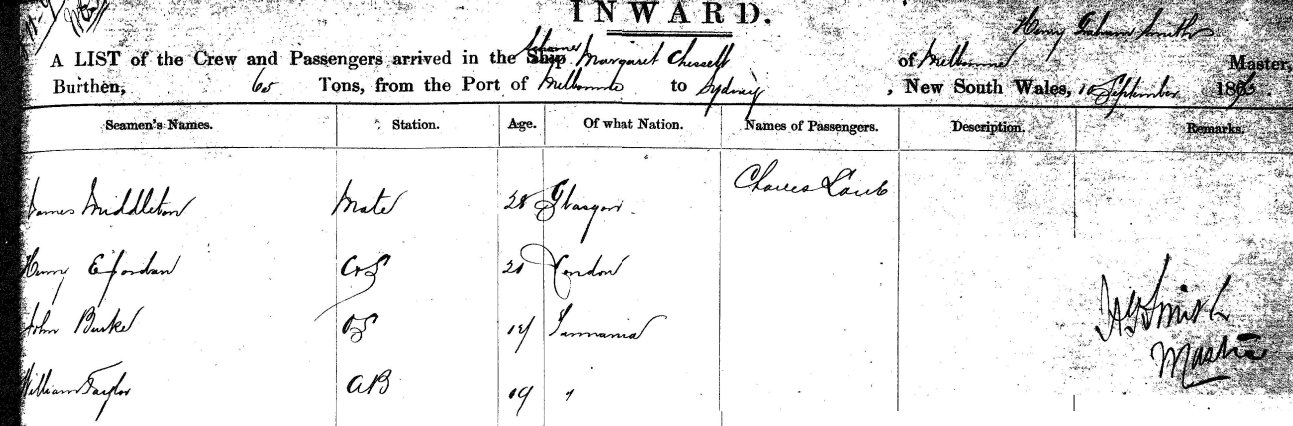 INWARD.
Henry Graham Smith
A LIST of the Crew and Passengers arrived in the Ship Schooner Margaret Chessell of Melbourne Master,
Burthen, 60 Tons, from the Port of Melbourne to Sydney, New South Wales, 10 September 186
Seamen's Names. Station. Age. Of what Nation. Names of Passengers. Description. Remarks.
James Middleton Mate 28 Glasgow Charles
Henry Jordan London
John Burke OS Tasmania
William Taylor AB 19 "
H G Smith
Master